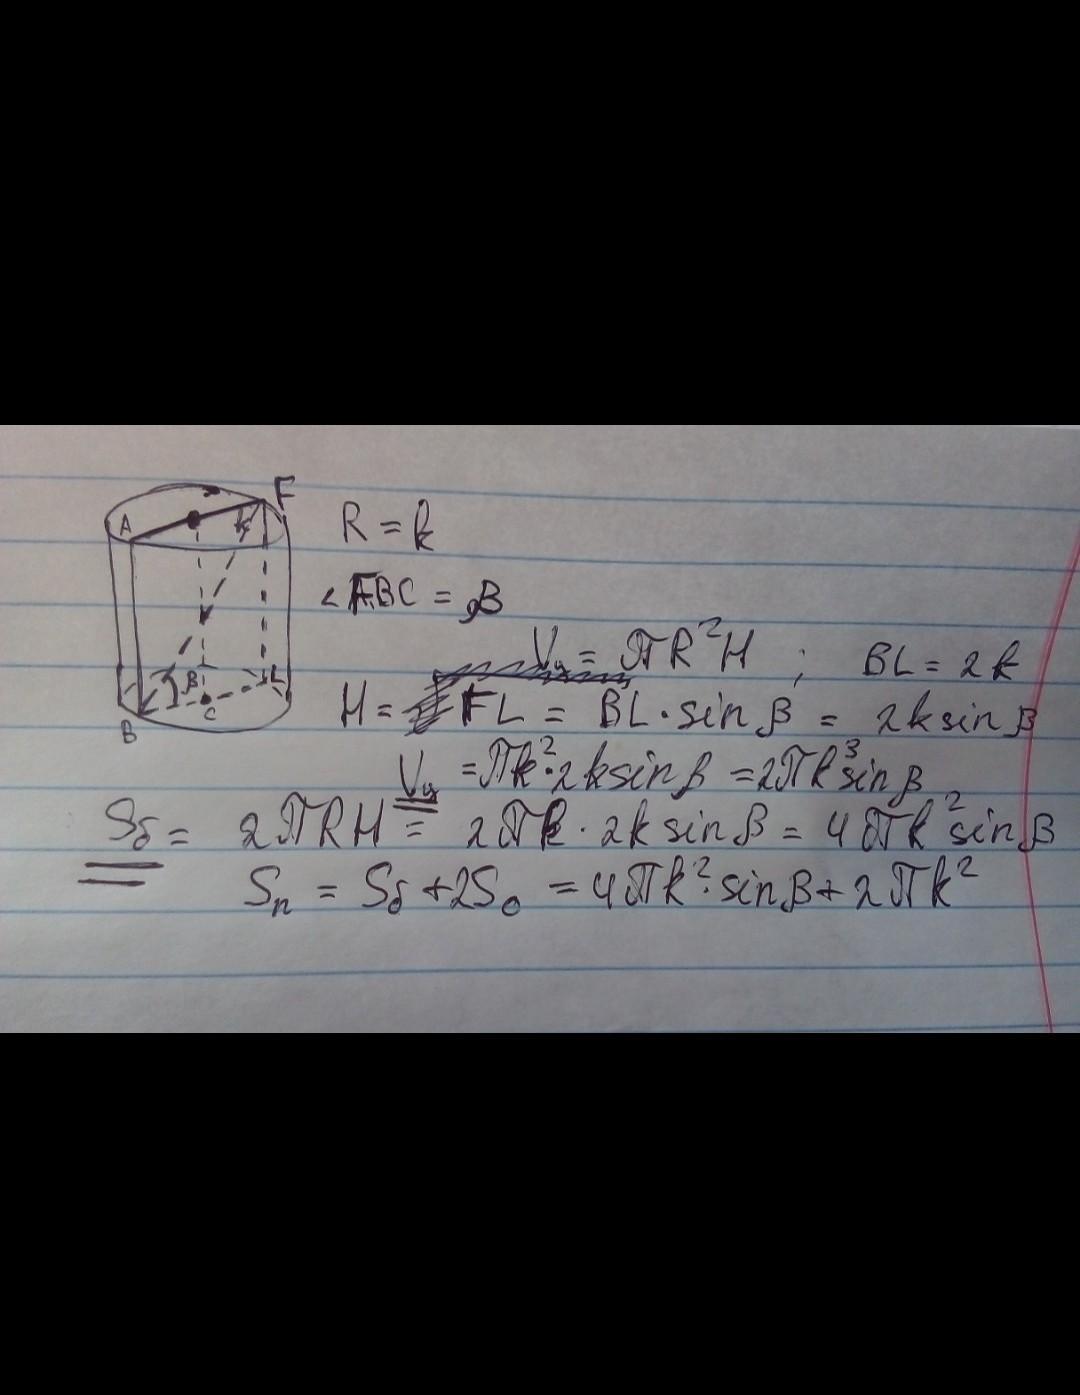 A F k
R = k
∠FBC = β
Vц = πR²H ; BL = 2k
β L
B C
H = FL = BL · sin β = 2k sin β
Vц = πk² · 2k sin β = 2πk³ sin β
Sδ = 2πRH = 2πk · 2k sin β = 4πk² sin β
Sп = Sδ + 2So = 4πk² · sin β + 2πk²